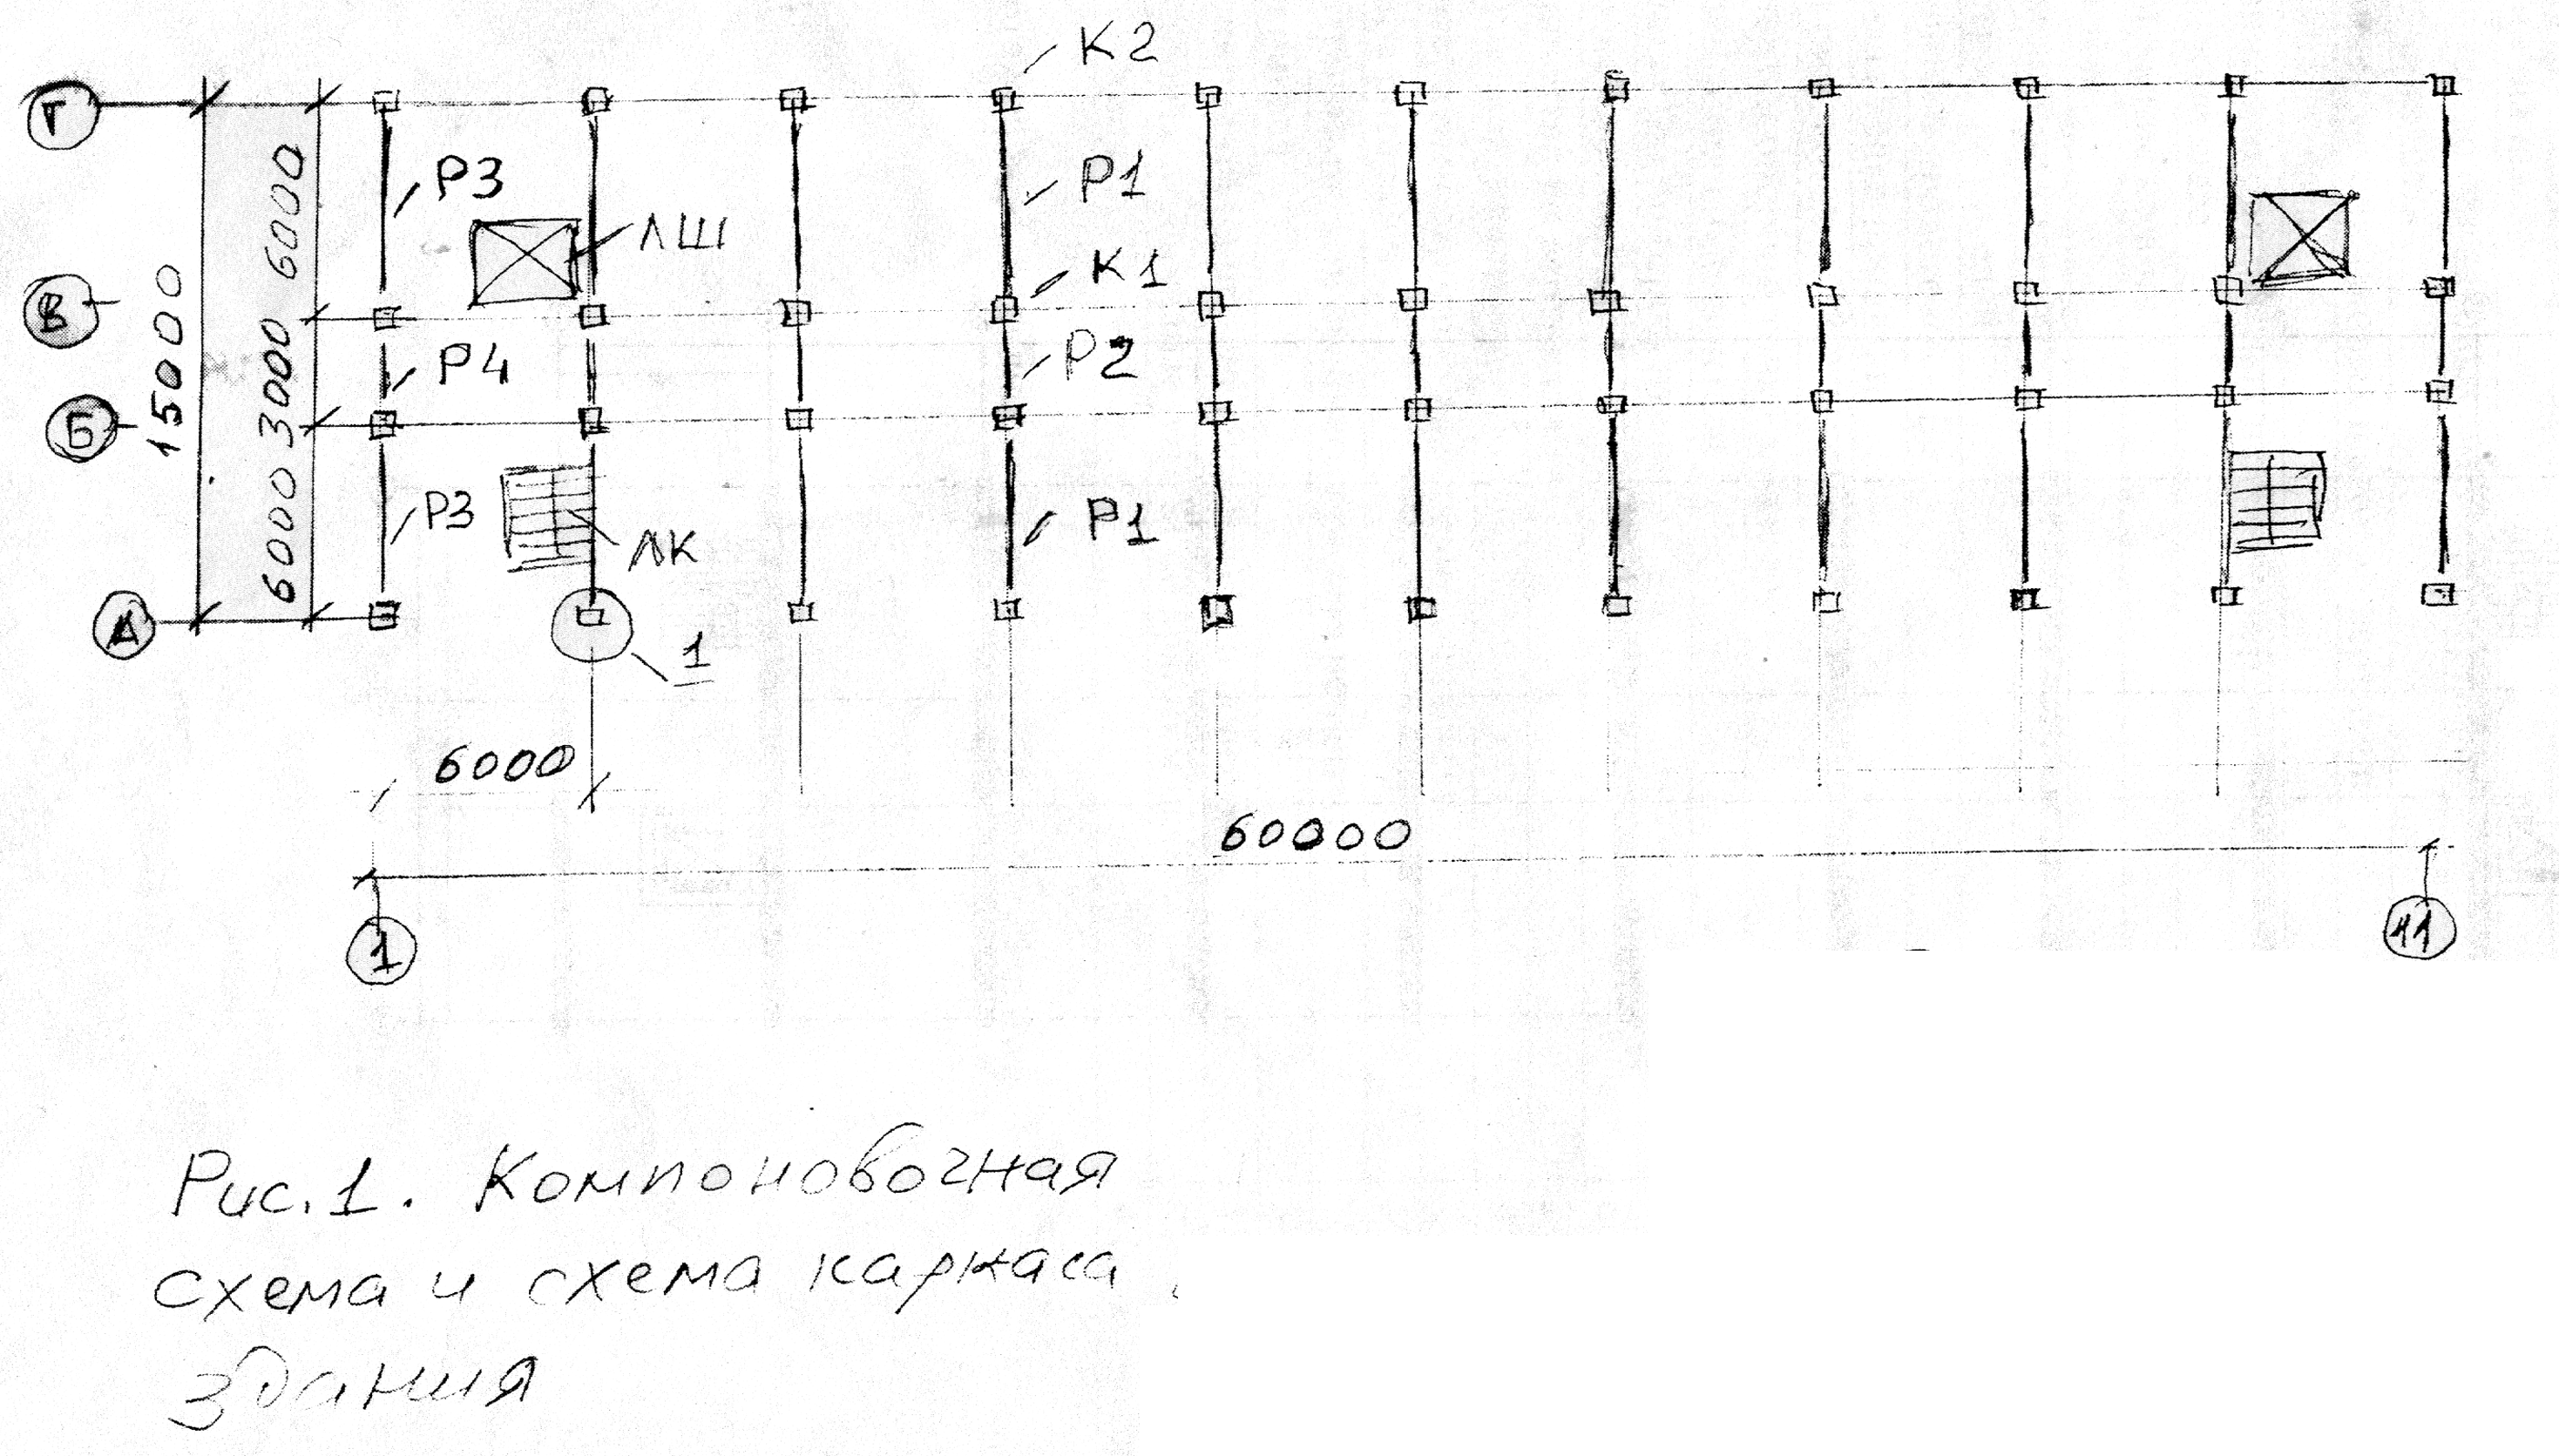 К2
Г
Р3
Р1
ЛШ
6000
К1
В
15000
3000
Р4
Р2
Б
6000
Р3
ЛК
Р1
А
1
6000
60000
1
11
Рис.1. Компоновочная
схема и схема каркаса
здания